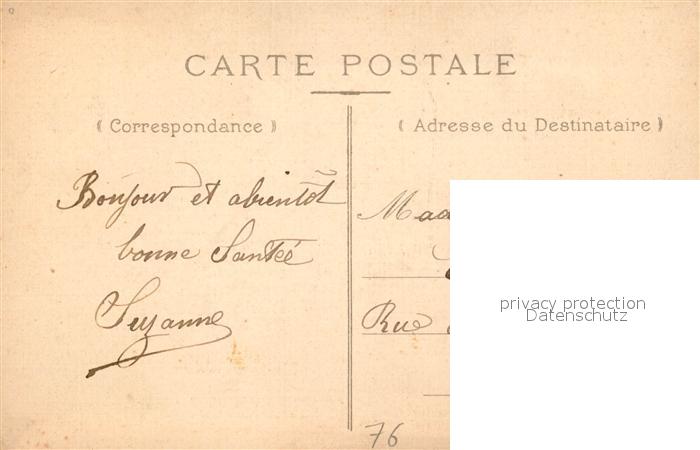 CARTE POSTALE
( Correspondance )
( Adresse du Destinataire )
Bonjour et abientôt
bonne Santée
Suzanne
Mad
Rue
privacy protection
Datenschutz
76